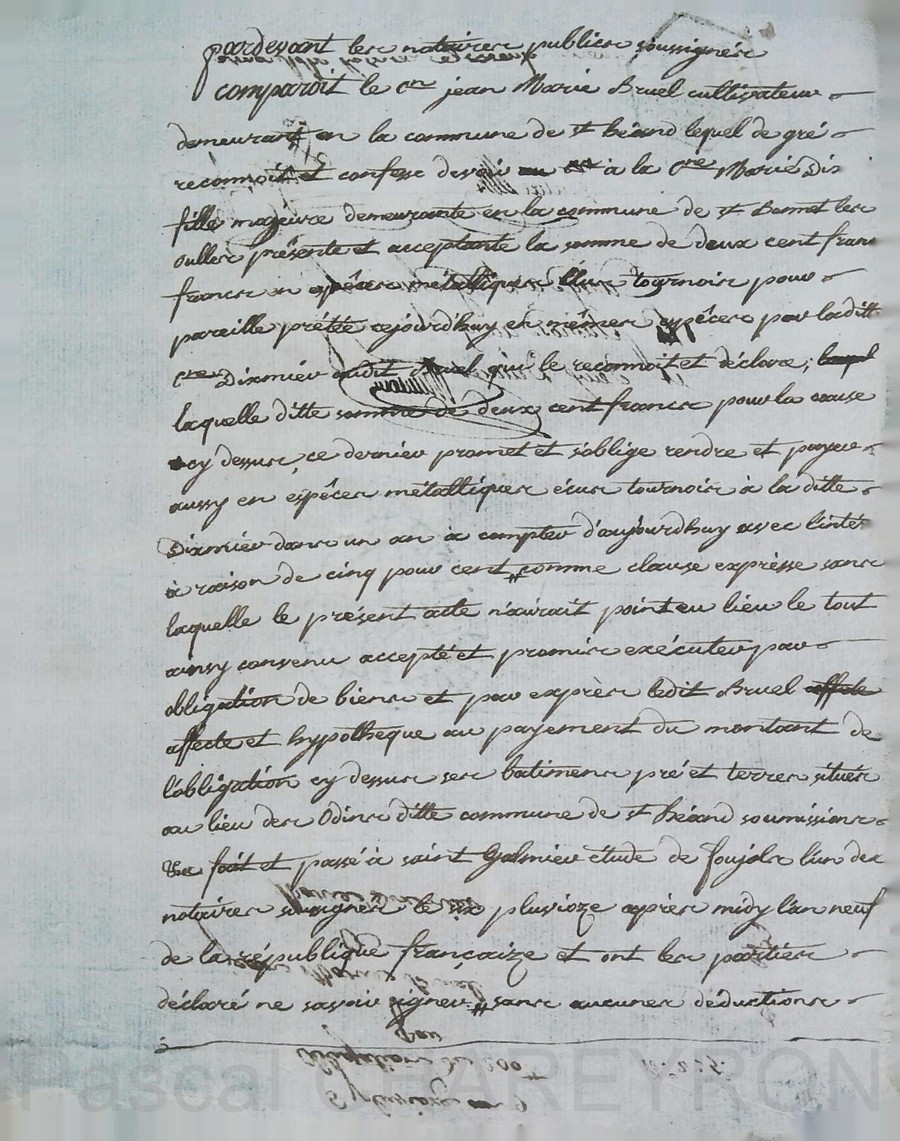 pardevant les notaires publics soussignés
comparoit le cen jean Marie Bruel cultivateur
demeurant en la commune de st héand lequel de gré
reconnoit et confesse devoir à la cne Marie Dix
fille majeure demeurante en la commune de st Bonnet les
oulles présente et acceptante la somme de deux cent
francs en espêces métalliques tournois pour
pareille prêtée cejourdhuy en mêmes espêces par laditte
cne Dixmier audit Bruel qui le reconnoit et déclare,
laquelle ditte somme de deux cent francs pour la cause
cy dessus, ce dernier promet et s'oblige rendre et payer
aussy en espêces métalliques écus tournois à la ditte
Dixmier dans un an à compter d'aujourdhuy avec l'inté
à raison de cinq pour cent comme clause expresse sans
laquelle le présent acte n'aurait point eu lieu le tout
ainsy convenu accepté et promis exécuter par
obligation de biens et par exprès ledit Bruel affecte
affecte et hypotheque au payement du montant de
l'obligation cy dessus ses batimens pré et terres situés
au lieu des Odins ditte commune de st héand soumissions
fait et passé à saint Galmier étude de foujols l'un des
notaires soussignés le six pluvioze après midy l'an neuf
de la république françaize et ont les parties
déclaré ne savoir signer, sans aucunes déductions
Pascal CHAREYRON